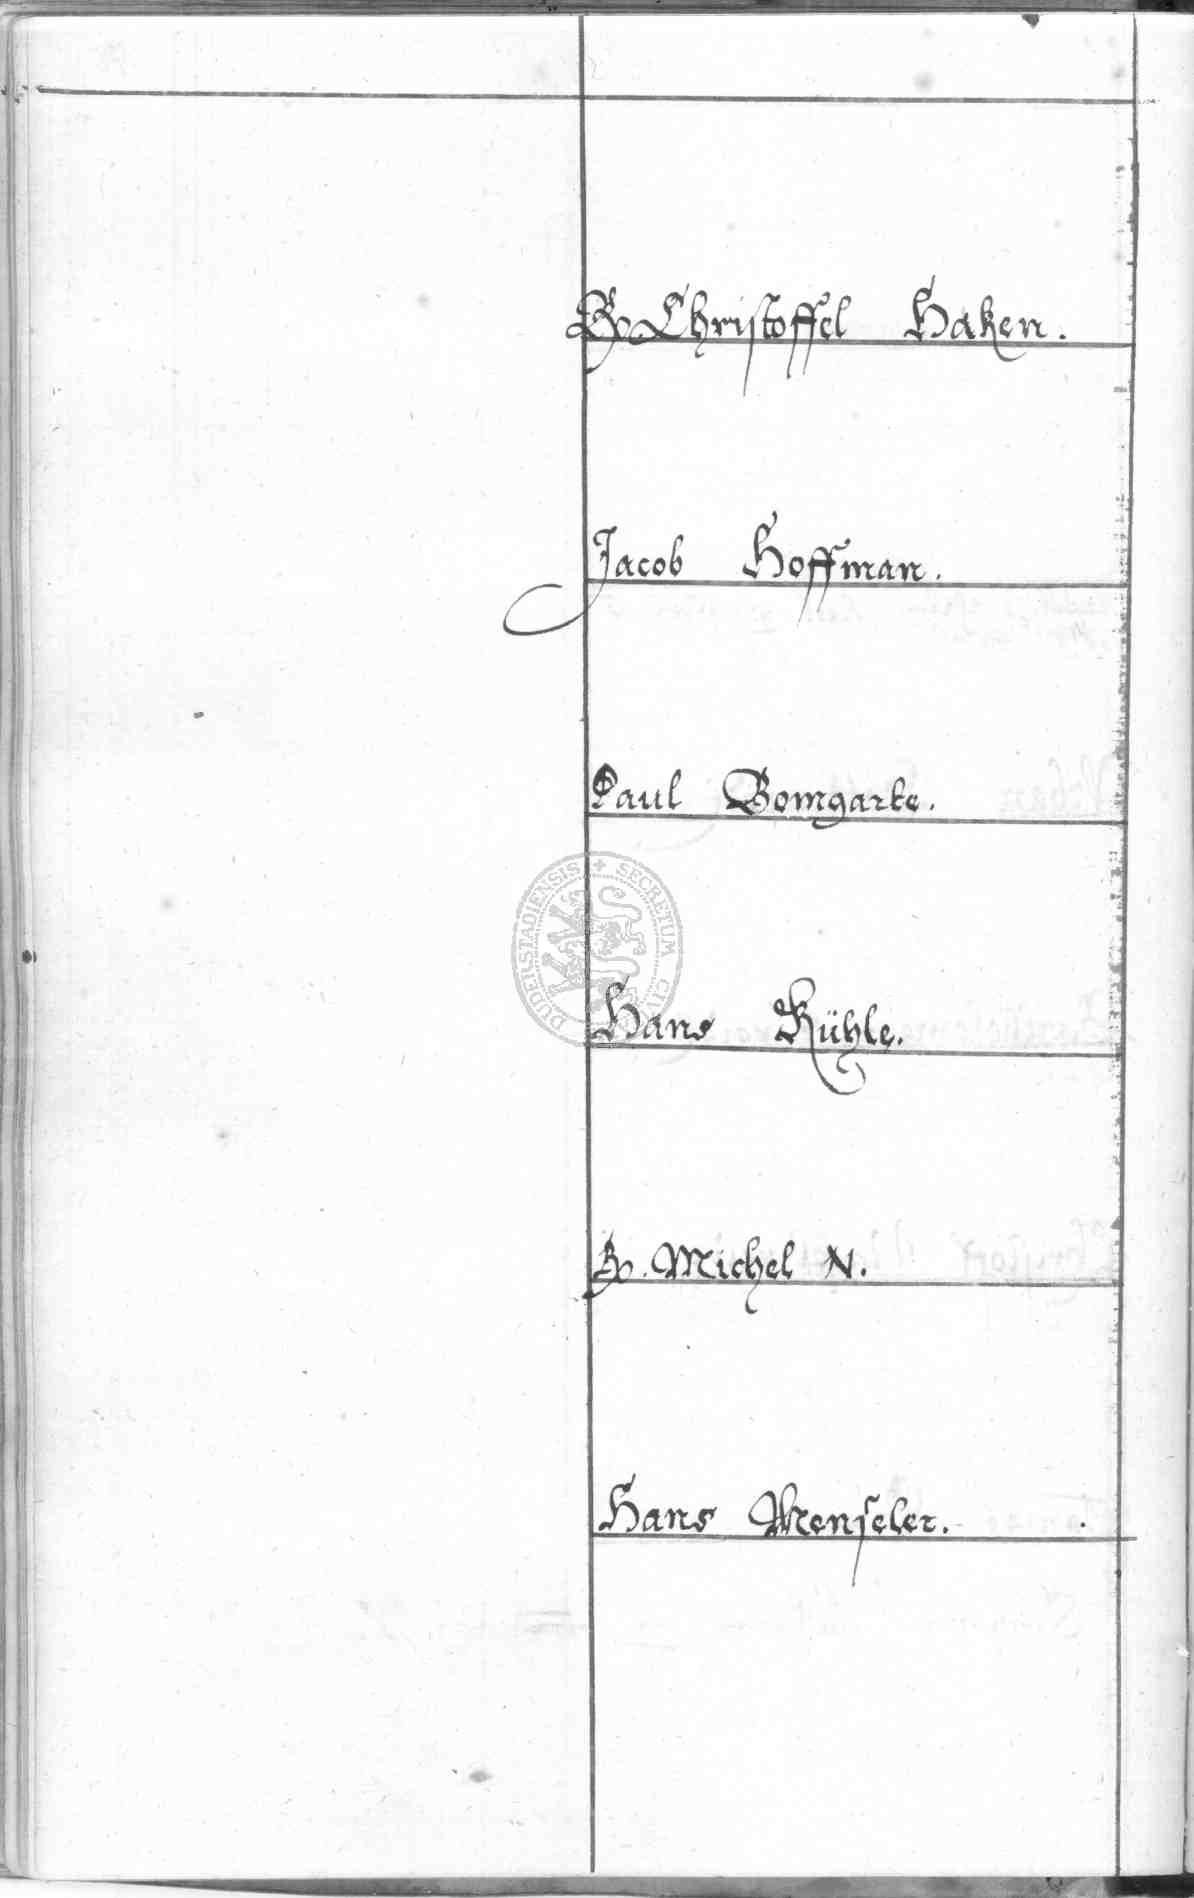 Christoffel Haken.
Jacob Hoffman.
Paul Bomgarte.
DUDERSTADIENSIS + SECRETUM
Hans Kühle.
Michel N.
Hans Menseler.